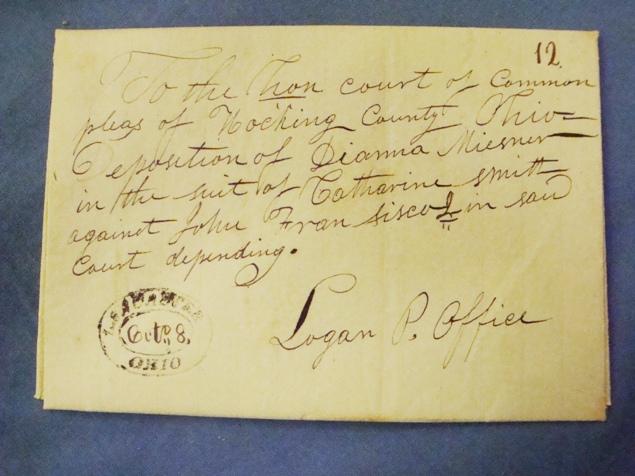 12
To the Hon court of Common
pleas of Hocking County Ohio
Deposition of Dianna Miesner
in the suit of Catharine Smith
against John Fran sisco in said
Court depending.
Logan P. Office
Oct 8,
OHIO